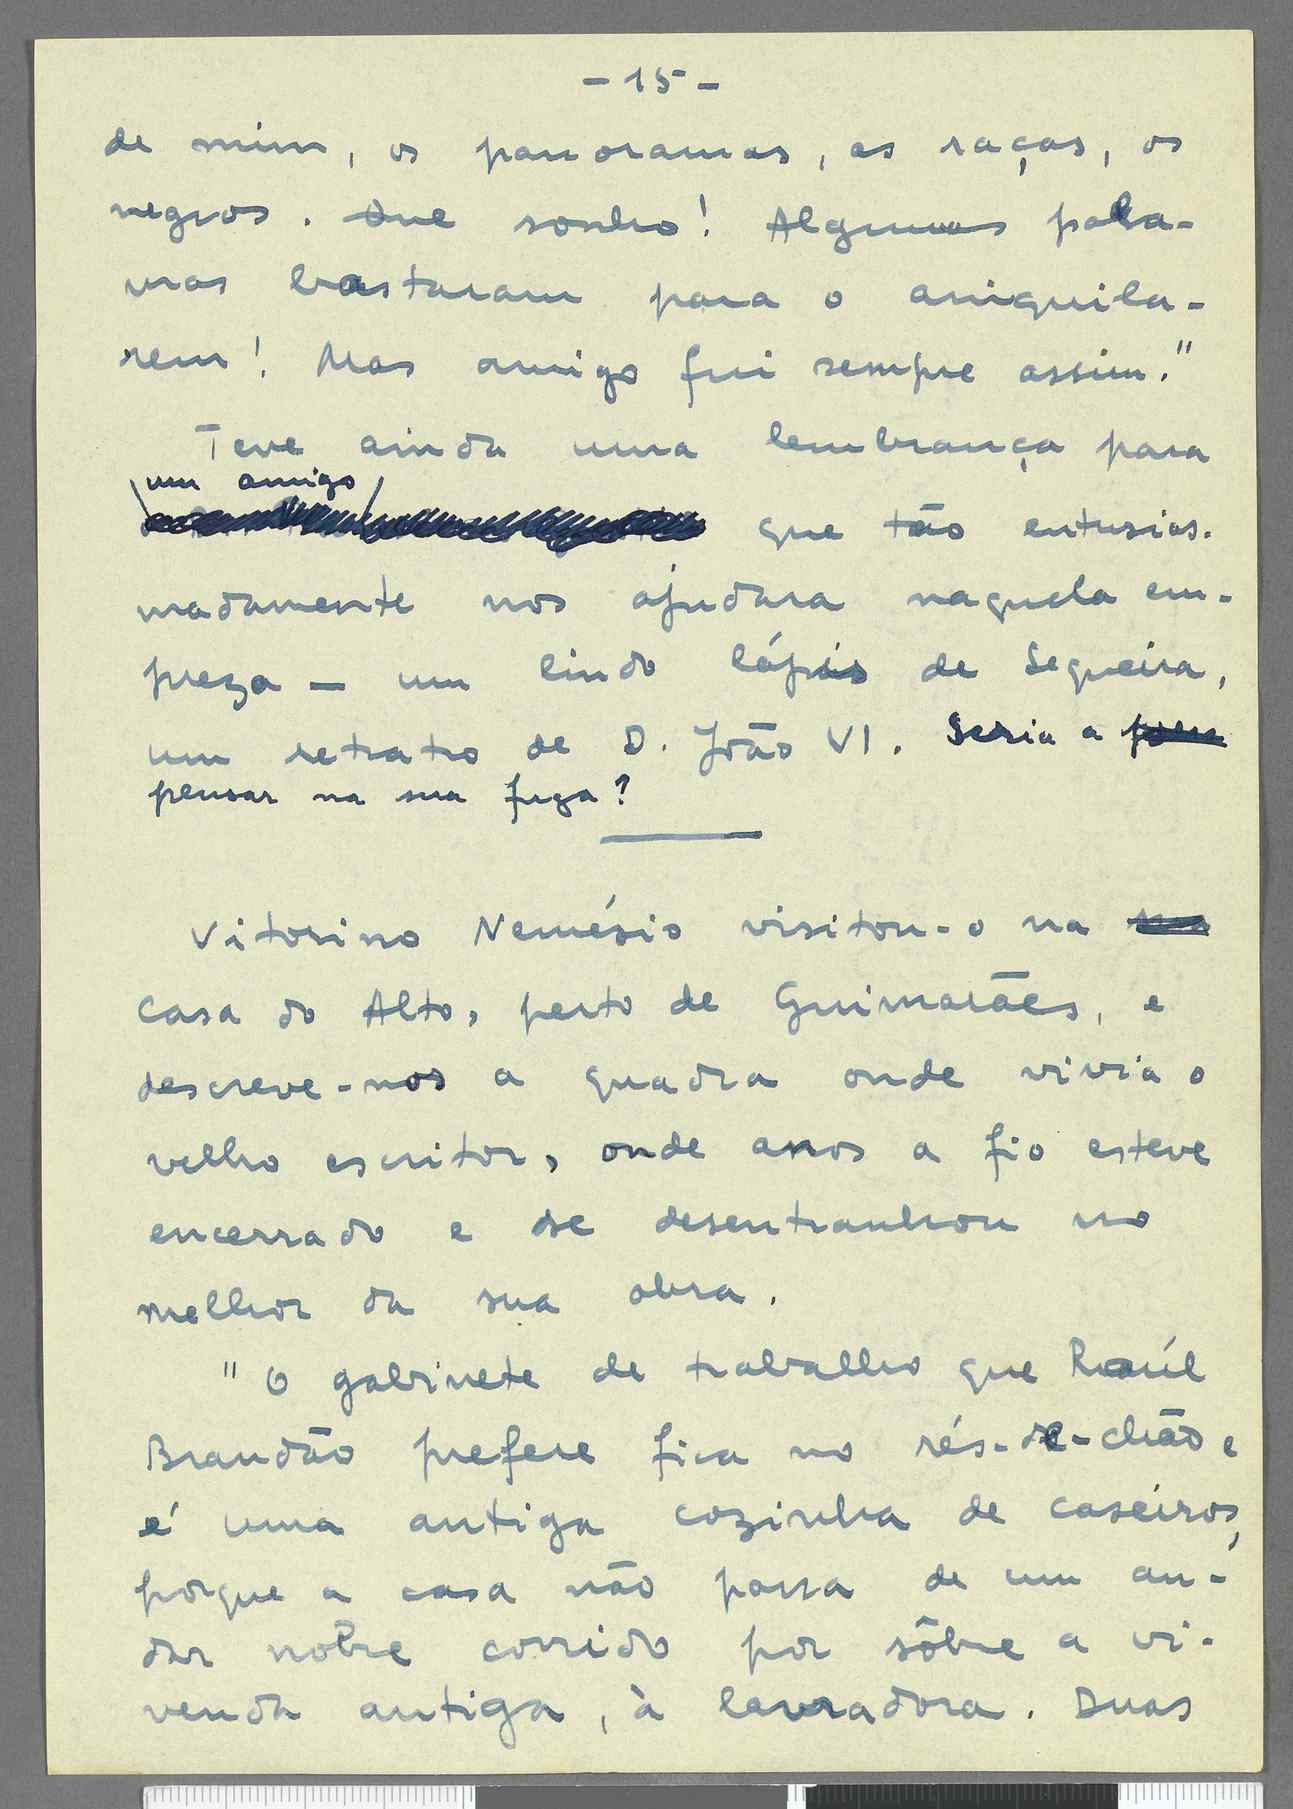 - 15 -
de mim, os panoramas, as raças, os
negros. Que sonho! Algumas pala-
vras bastaram para o aniquila-
rem! Mas amigo fui sempre assim."
Teve ainda uma lembrança para
um amigo
que tão entusias-
madamente nos ajudara naquela em-
preza — um lindo lápis de Sequeira,
um retrato de D. João VI. Seria a
pensar na sua fuga?
Vitorino Nemésio visitou-o na
Casa do Alto, perto de Guimarães, e
descreve-nos a quadra onde vivia o
velho escritor, onde anos a fio esteve
encerrado e se desentranhou no
melhor da sua obra.
"O gabinete de trabalho que Raúl
Brandão prefere fica no rés-de-chão e
é uma antiga cozinha de caseiros,
porque a casa não passa de um an-
dar nobre corrido por sôbre a vi-
venda antiga, à lavradora. Duas